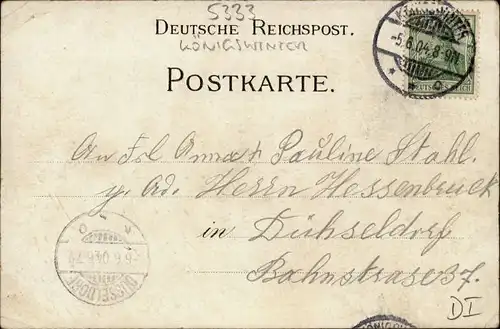 5333
DEUTSCHE REICHSPOST.
KÖNIGSWINTER
-5.6.04.8-9N
DEUTSCHES REICH
POSTKARTE.
An Frl Anna & Pauline Stahl.
p. Ad. Herrn Hessenbruck
in Düsseldorf
Bahnstrasse 37.
-6.6.04.6-7V
DÜSSELDORF
DI